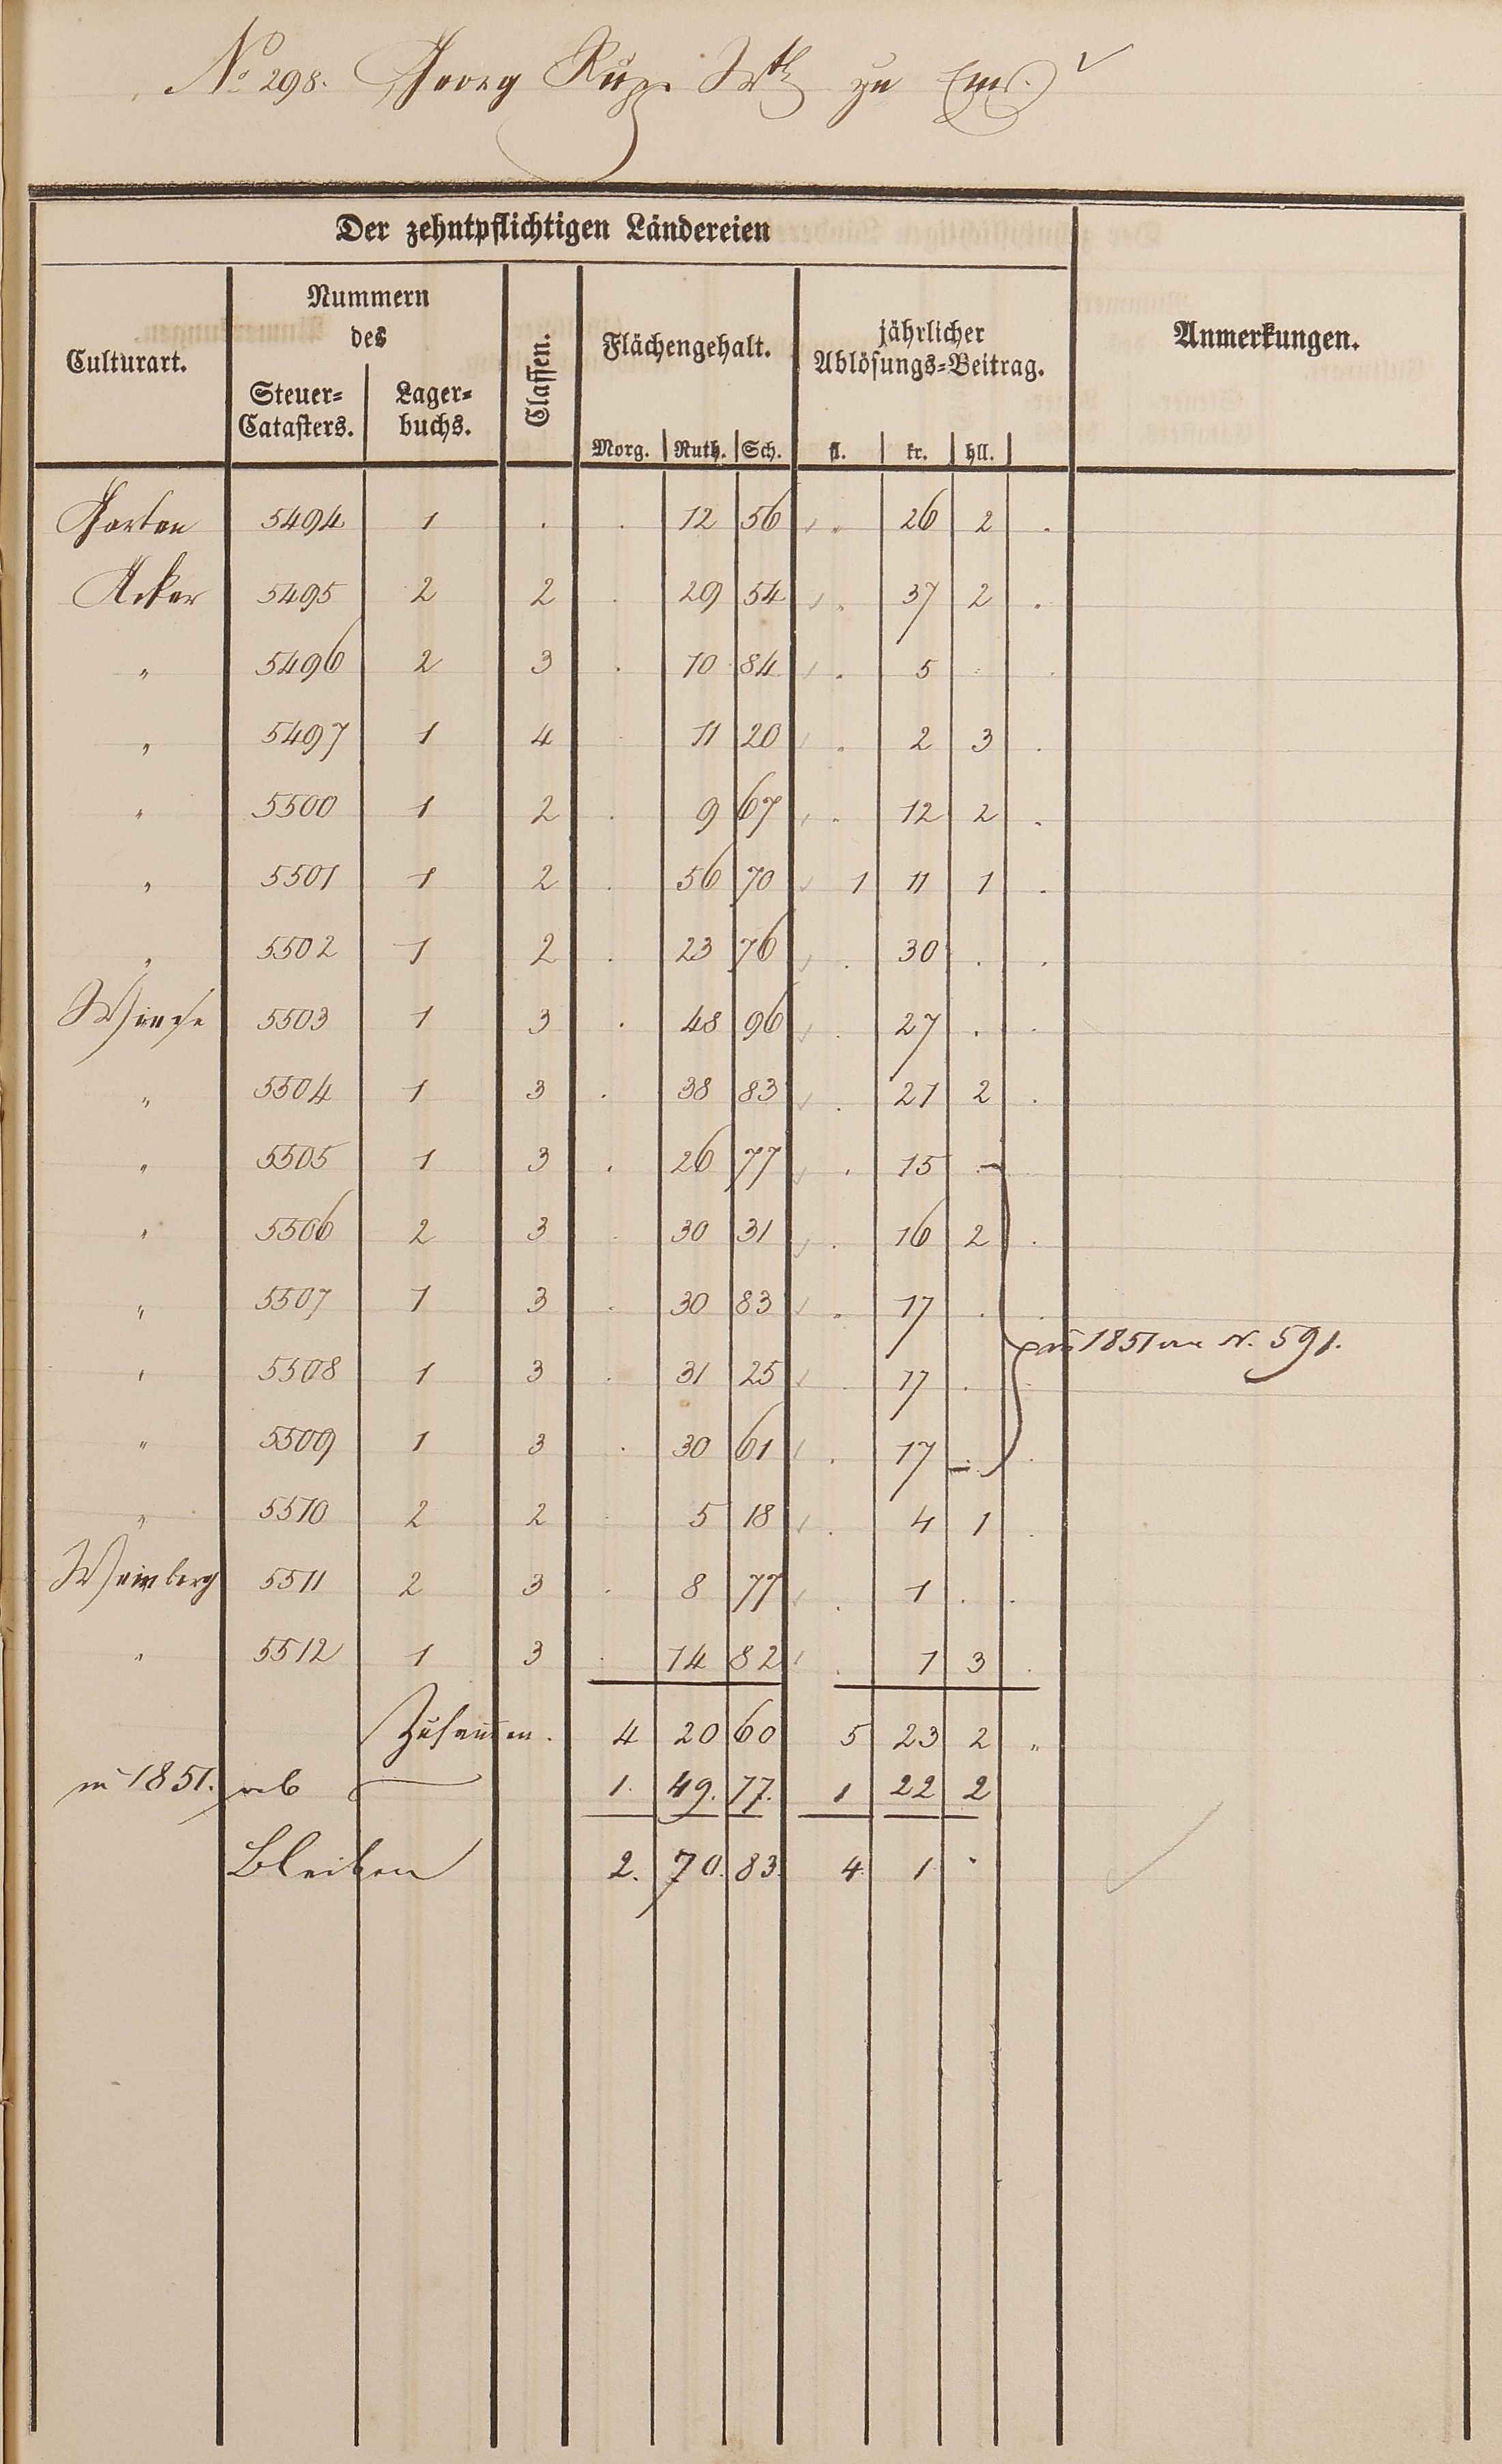 No 298. Georg Rupp Wtb zu Ems.
Der zehntpflichtigen Ländereien
Culturart. Nummern des Steuer-Catasters. Lager-buchs. Classen. Flächengehalt. Morg. Ruth. Sch. jährlicher Ablösungs-Beitrag. fl. kr. hll. Anmerkungen.
Garten 5494 1 . . 12 56 . 26 2 .
Acker 5495 2 2 . 29 54 . 37 2 .
" 5496 2 3 . 10 84 . 5 . .
" 5497 1 4 . 11 20 . 2 3 .
" 5500 1 2 . 9 67 . 12 2 .
" 5501 1 2 . 56 70 1 11 1 .
" 5502 1 2 . 23 76 . 30 . .
Wiese 5503 1 3 . 48 96 . 27 . .
" 5504 1 3 . 38 83 . 21 2 .
" 5505 1 3 . 26 77 . 15 .
" 5506 2 3 . 30 31 . 16 2 .
" 5507 1 3 . 30 83 . 17 . .
1851 an N. 591.
" 5508 1 3 . 31 25 . 17 . .
" 5509 1 3 . 30 61 . 17 . .
" 5510 2 2 . 5 18 . 4 1 .
Weinberg 5511 2 3 . 8 77 . 1 . .
" 5512 1 3 . 14 82 . 1 3 .
Zusammen. 4 20 60 5 23 2 "
in 1851. ab 1. 49. 77. 1 22 2
Bleiben 2. 70. 83. 4 1 .